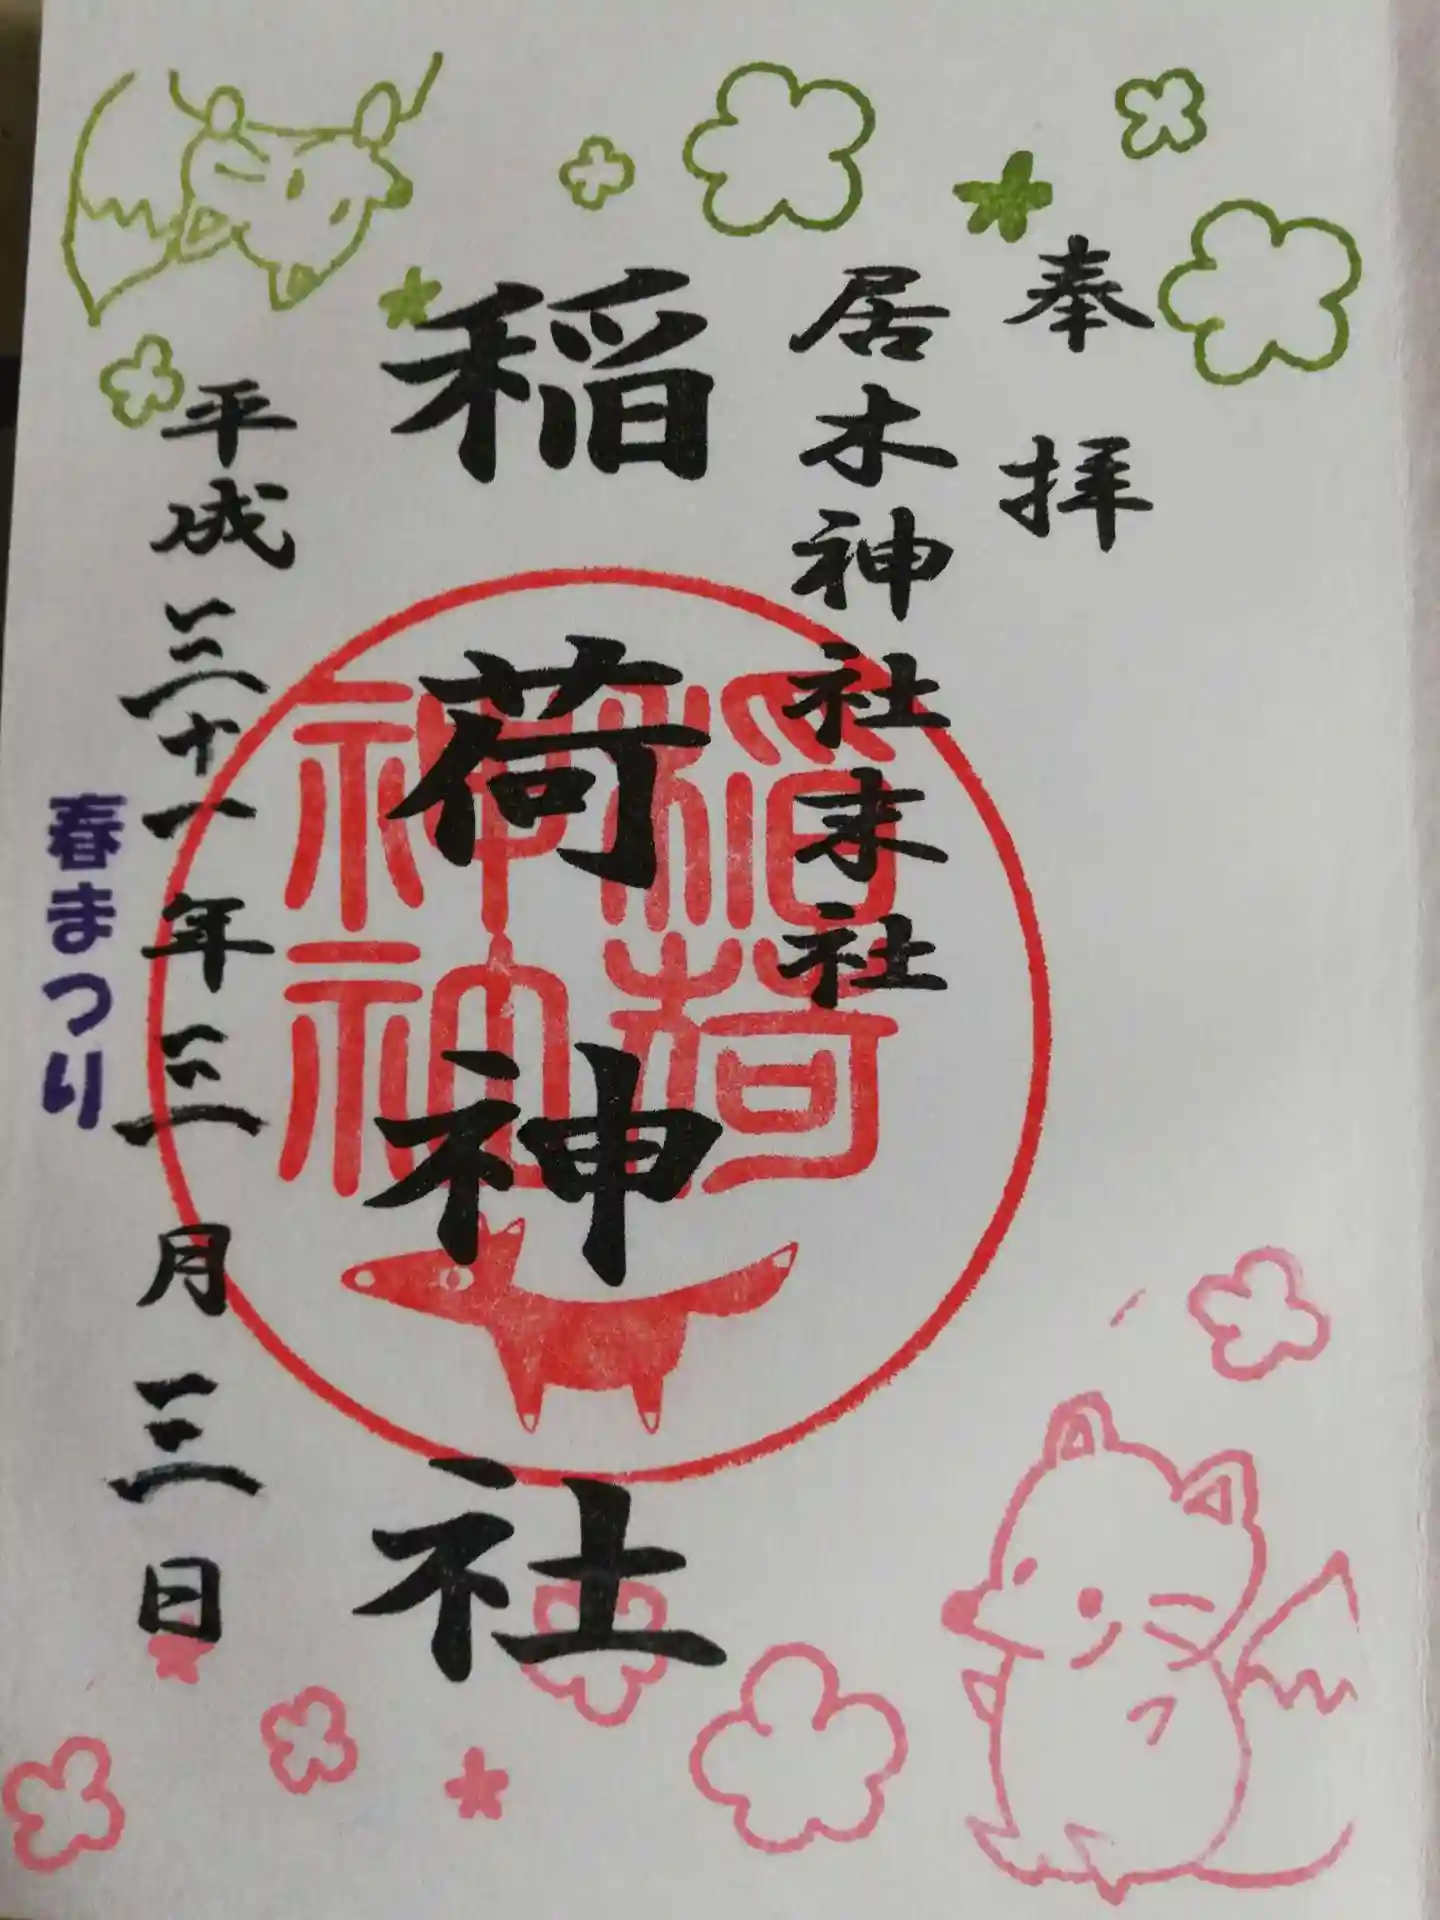 奉拝
居木神社末社
稲荷神社
稲荷
神社
平成三十一年三月三日
春まつり